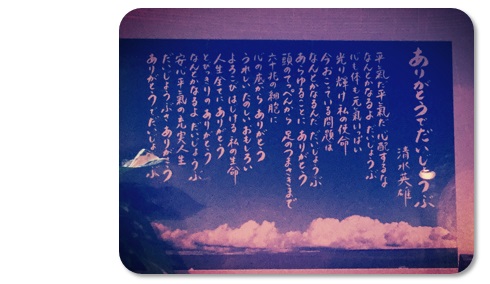 ありがとうでだいじょうぶ
清水英雄
平気だ平気だ心配するな
なんとかなるよ だいじょうぶ
心も体も元気いっぱい
光り輝け 私の使命
今おこっている問題は
なんとかなるんだ だいじょうぶ
あらゆることに ありがとう
頭のてっぺんから 足のつまさきまで
六十兆の細胞に
心の底から ありがとう
うれしい たのしい おもしろい
よろこびはじける 私の生命
人生全てに ありがとう
とびっきりの ありがとう
なんとかなるよ だいじょうぶ
安心 平気の 充実人生
だいじょうぶさ ありがとう
ありがとう だいじょうぶ